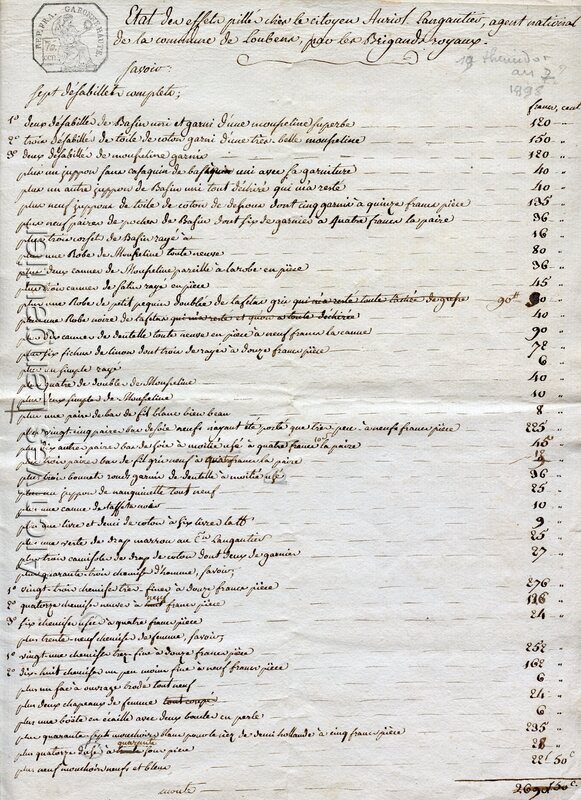 Etat des effets pillés chés le citoyen Auriol Laugautier, agent national
de la commune de Loubens, par les Brigands royaux.
19 thermidor
an 7
Savoir
francs, cent
Sept désabilles complets;
1° deux désabillés de Basin uni et garni d'une mouseline superbe 120 "
2° trois désabillés de toile de coton garni d'une tres belle mouseline 150 "
3° deux désabillés de mouseline garnis 120 "
plus un juppon sans casaquin de basin uni avec sa garniture 40 "
plus un autre juppon de Basin uni tout déchiré qui m'a resté 40 "
plus neuf juppons de toile de coton de dessous dont cinq garnis a quinze francs pièce 135 "
plus neuf paires de poches de Basin dont six de garnies a quatre francs la paire 36 "
plus trois corsets de Basin rayé a 16 "
plus une Robe de Mouseline toute neuve 80 "
plus deux cannes de Mouseline pareille à la robe en pièce 36 "
plus trois cannes de satin rayé en pièce 45 "
plus une Robe de petit pequin doublée de tafetas gris qui m'a resté toute 90
plus une Robe noire de tafetas qui m'a resté et qu'on a toute déchirée 40 "
plus dix cannes de dentelle toute neuve en pièce à neuf francs la canne 90 "
plus six fichus de linon dont trois de rayés à douze francs pièce 72 "
plus un simple rayé 6 "
plus quatre de doubles de Mouseline 40 "
plus deux simples de Mouseline 10 "
plus une paire de bas de fil blanc bien beau 8 "
plus vingt-cinq paires bas de soie neufs n'ayant été porté que tres peu à neuf francs pièce 225 "
plus dix autres paires bas de soie à moitié usé à quatre francs la paire 45 "
plus trois paires bas de fil gris neuf à francs la paire
plus trois bonnets ronds garnis de dentelle à moitié usé 36 "
plus un juppon de nanquinette tout neuf 25 "
plus une canne de taffetas noir 10 "
plus une livre et demi de coton à six livres la tt 9 "
plus une veste de drap marron au Cen Laugautier 25 "
plus trois camisoles de drap de coton dont deux de garnies 27 "
plus quarante-trois chemises d'homme, savoir;
1° vingt-trois chemises tres fines à douze francs pièce 276 "
2° quatorze chemises neuves à neuf francs pièce 126 "
3° six chemises usées à quatre francs pièce 24 "
plus trente-neuf chemises de femme, savoir;
1° vingt-une chemises tres fines à douze francs pièce 252 "
2° dix-huit chemises un peu moins fines à neuf francs pièce 162 "
plus un sac à ouvrage brodé tout neuf 6 "
plus deux chapeaux de femme 24 "
plus une boëte en écaille avec deux boutons en perle 6 "
plus quarante-sept mouchoirs blancs pour le nez de demi hollande à cinq francs pièce 235 "
plus quatorze à quarante sous pièce 28 "
plus neuf mouchoirs neufs et bleus 22 50c
monte 50c.
Archives